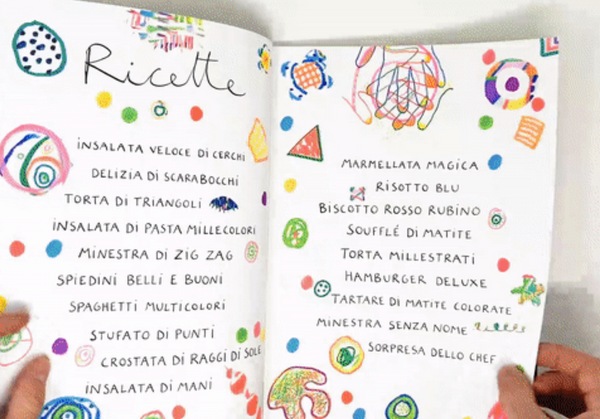 Ricette
INSALATA VELOCE DI CERCHI
DELIZIA DI SCARABOCCHI
TORTA DI TRIANGOLI
INSALATA DI PASTA MILLECOLORI
MINESTRA DI ZIG ZAG
SPIEDINI BELLI E BUONI
SPAGHETTI MULTICOLORI
STUFATO DI PUNTI
CROSTATA DI RAGGI DI SOLE
INSALATA DI MANI
MARMELLATA MAGICA
RISOTTO BLU
BISCOTTO ROSSO RUBINO
SOUFFLÉ DI MATITE
TORTA MILLESTRATI
HAMBURGER DELUXE
TARTARE DI MATITE COLORATE
MINESTRA SENZA NOME
SORPRESA DELLO CHEF